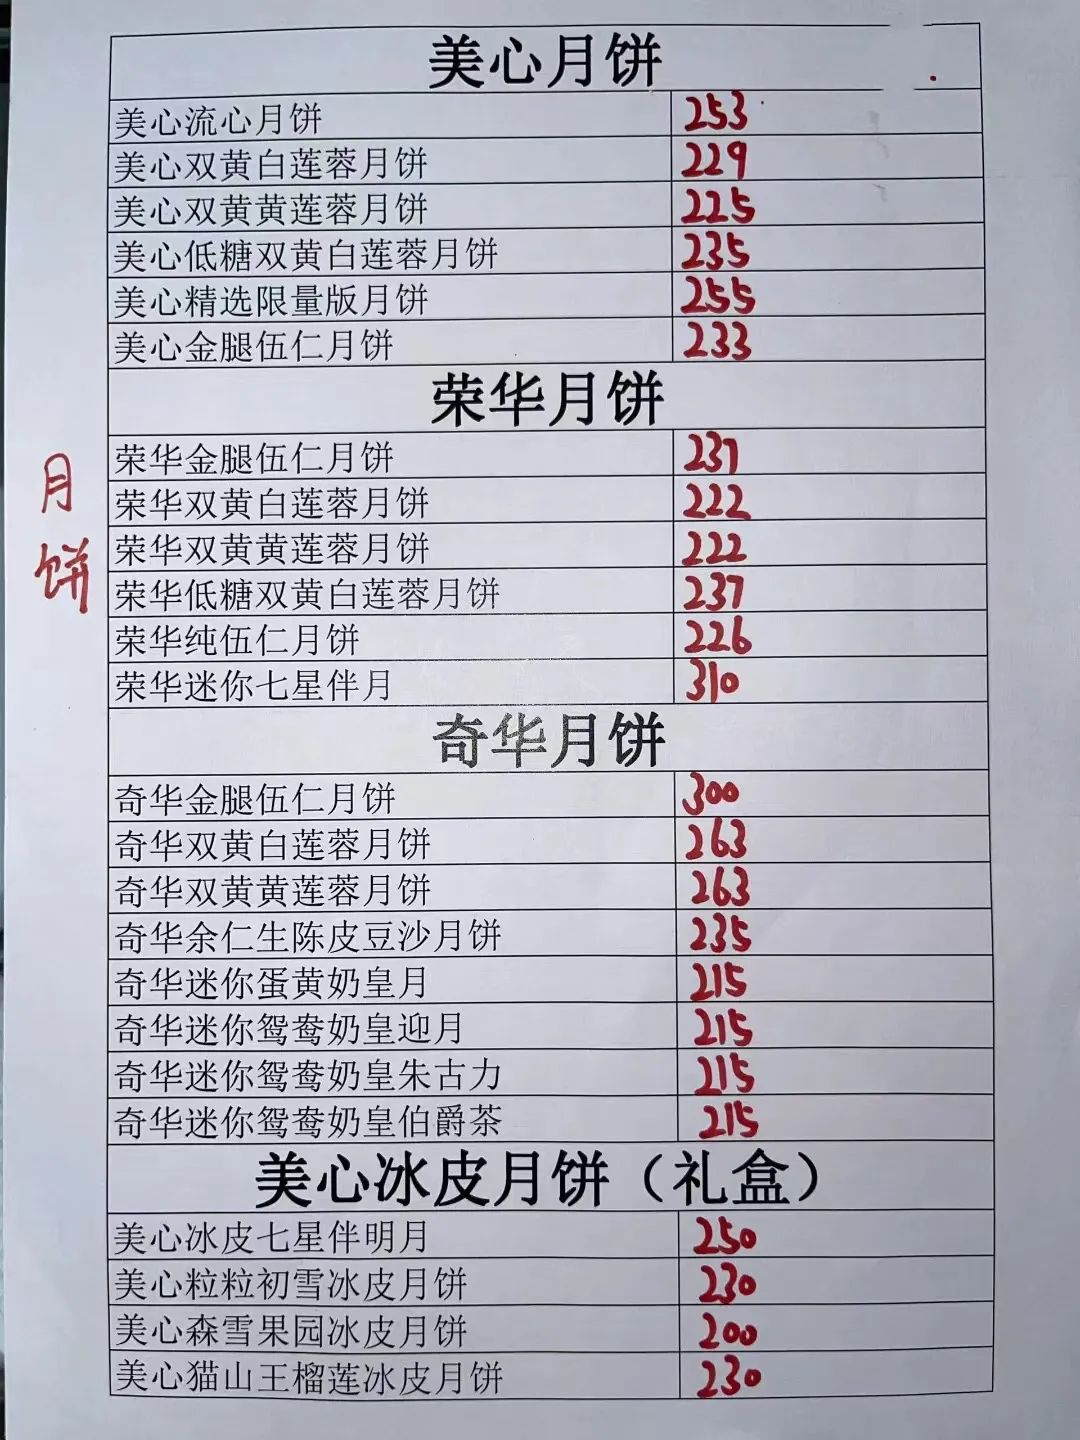 美心月饼
美心流心月饼 253
美心双黄白莲蓉月饼 229
美心双黄黄莲蓉月饼 225
美心低糖双黄白莲蓉月饼 235
美心精选限量版月饼 255
美心金腿伍仁月饼 233
荣华月饼
荣华金腿伍仁月饼 237
荣华双黄白莲蓉月饼 222
荣华双黄黄莲蓉月饼 222
荣华低糖双黄白莲蓉月饼 237
荣华纯伍仁月饼 226
荣华迷你七星伴月 310
月饼
奇华月饼
奇华金腿伍仁月饼 300
奇华双黄白莲蓉月饼 263
奇华双黄黄莲蓉月饼 263
奇华余仁生陈皮豆沙月饼 235
奇华迷你蛋黄奶皇月 215
奇华迷你鸳鸯奶皇迎月 215
奇华迷你鸳鸯奶皇朱古力 215
奇华迷你鸳鸯奶皇伯爵茶 215
美心冰皮月饼（礼盒）
美心冰皮七星伴明月 250
美心粒粒初雪冰皮月饼 230
美心森雪果园冰皮月饼 200
美心猫山王榴莲冰皮月饼 230